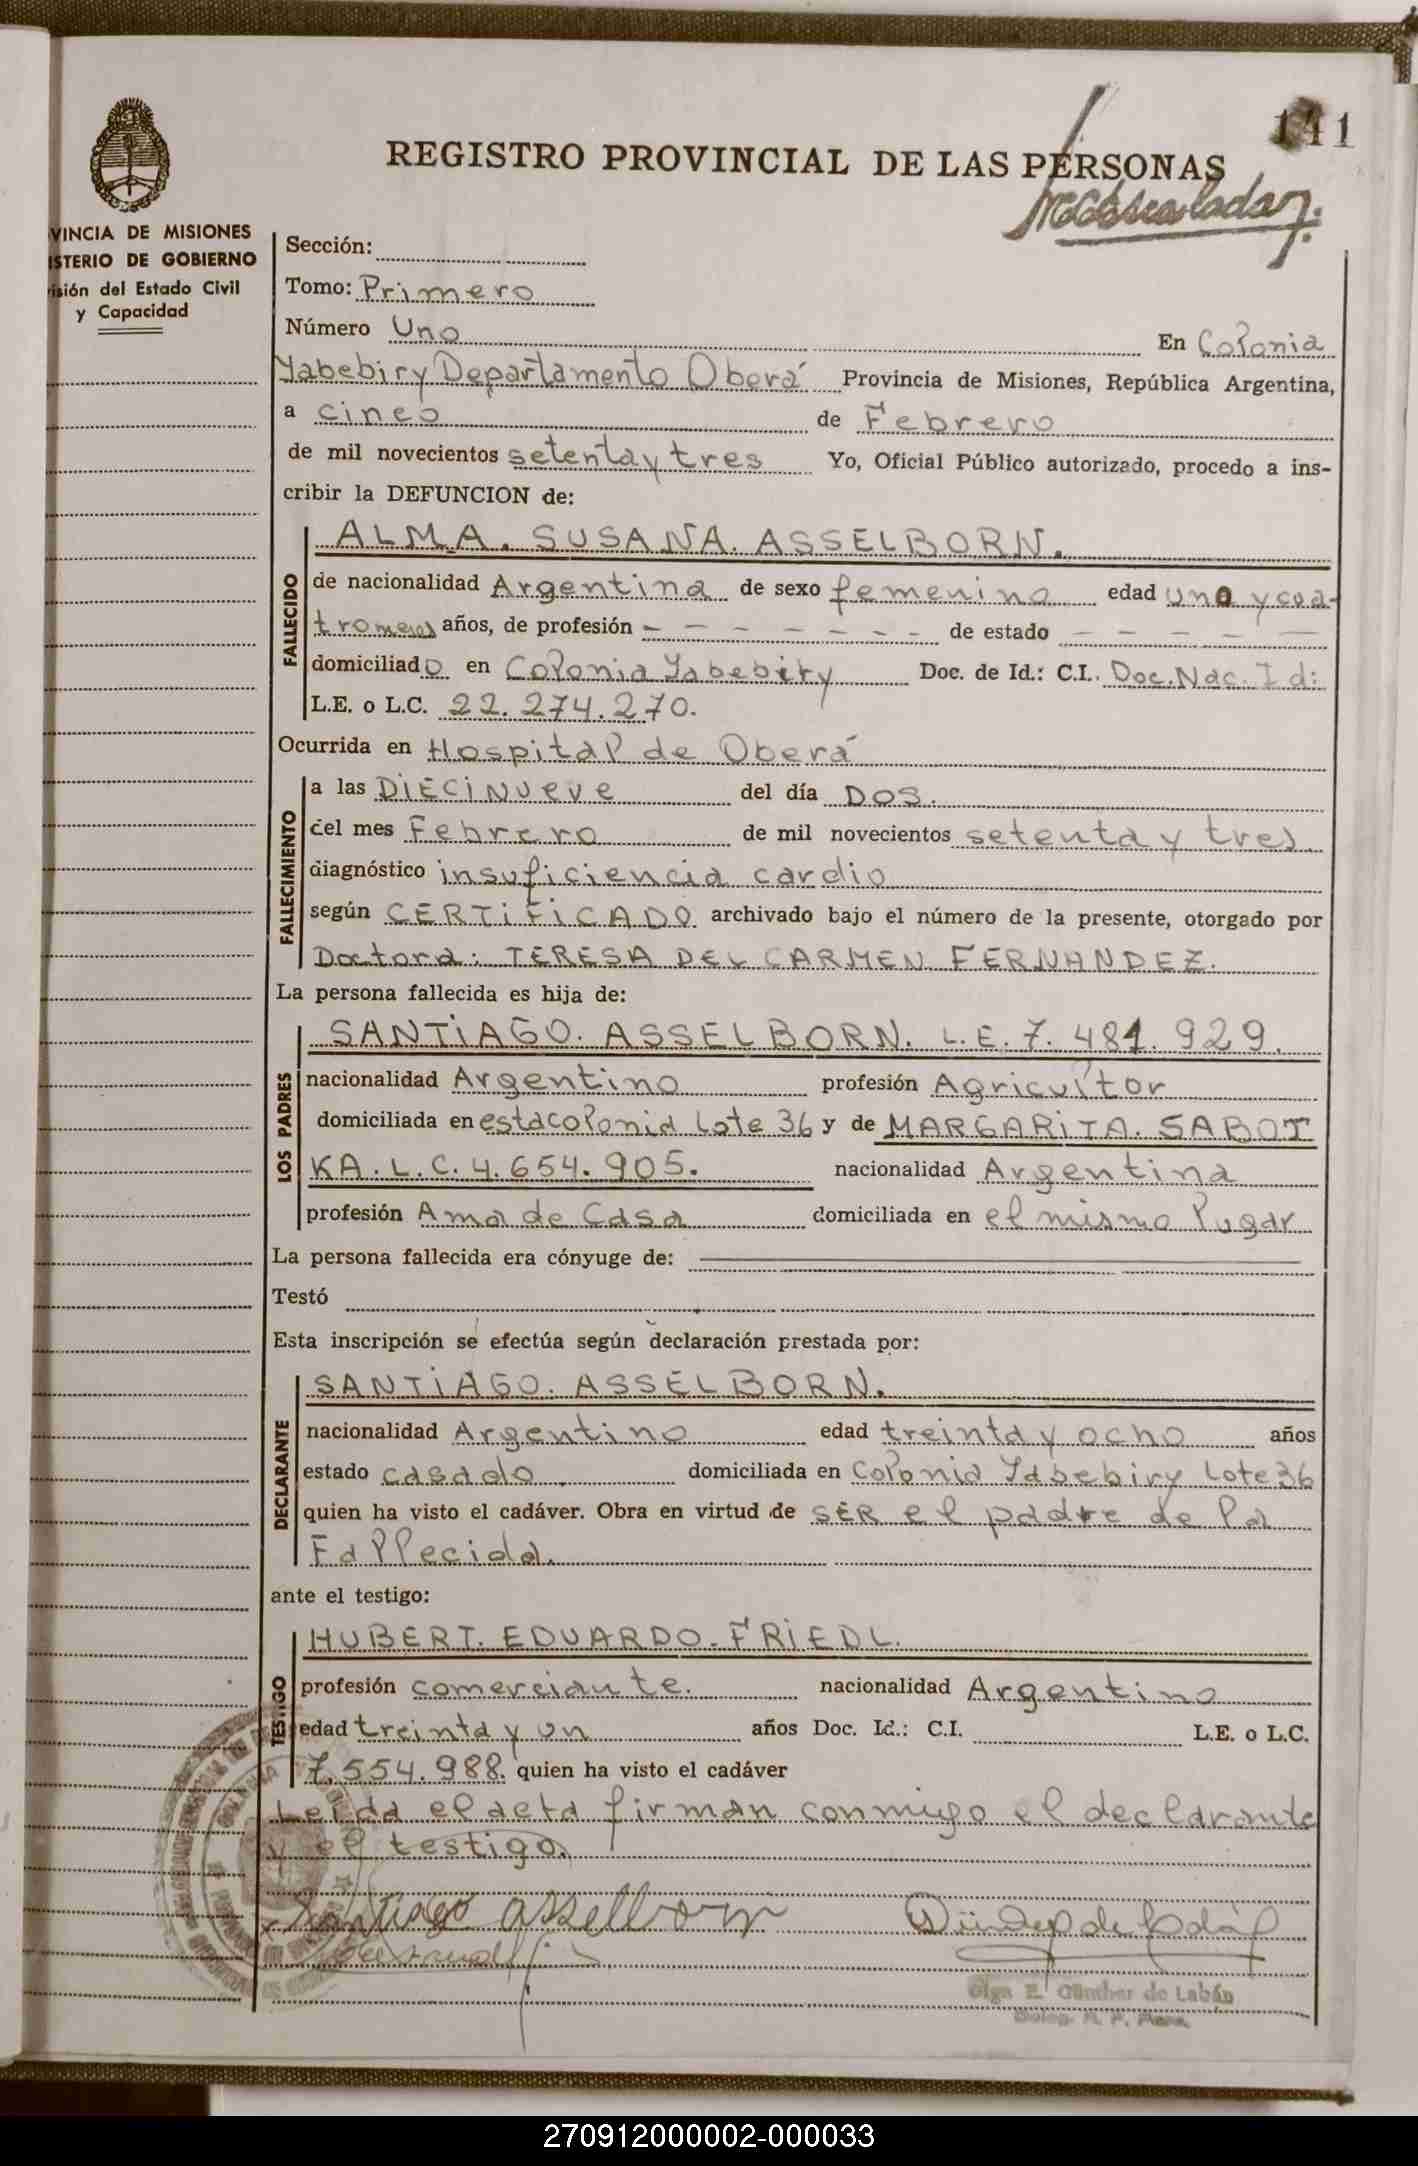 141
REGISTRO PROVINCIAL DE LAS PERSONAS
VINCIA DE MISIONES
STERIO DE GOBIERNO
isión del Estado Civil
y Capacidad
Sección:
Tomo: Primero
Número Uno En Colonia
Yabebiry Departamento Oberá Provincia de Misiones, República Argentina,
a cinco de Febrero
de mil novecientos setenta y tres Yo, Oficial Público autorizado, procedo a ins-
cribir la DEFUNCION de:
ALMA. SUSANA. ASSELBORN.
FALLECIDO
de nacionalidad Argentina de sexo femenino edad uno y cua-
tro meses años, de profesión - - - - - - - de estado - - - - -
domiciliado en Colonia Yabebiry Doc. de Id.: C.I. Doc. Nac. Id:
L.E. o L.C. 22.274.270.
Ocurrida en Hospital de Oberá
FALLECIMIENTO
a las DIECINUEVE del día DOS.
del mes Febrero de mil novecientos setenta y tres.
diagnóstico insuficiencia cardio
según CERTIFICADO archivado bajo el número de la presente, otorgado por
Doctora: TERESA DEL CARMEN FERNANDEZ.
La persona fallecida es hija de:
LOS PADRES
SANTIAGO. ASSELBORN. L.E. 7.481.929.
nacionalidad Argentino profesión Agricultor
domiciliada en esta colonia Lote 36 y de MARGARITA. SABOT
KA. L.C. 4.654.905. nacionalidad Argentina
profesión Ama de Casa domiciliada en el mismo lugar
La persona fallecida era cónyuge de:
Testó
Esta inscripción se efectúa según declaración prestada por:
DECLARANTE
SANTIAGO. ASSELBORN.
nacionalidad Argentino edad treinta y ocho años
estado casado domiciliada en Colonia Yabebiry Lote 36
quien ha visto el cadáver. Obra en virtud de SER el padre de la
Fallecida.
ante el testigo:
TESTIGO
HUBERT. EDUARDO. FRIEDL.
profesión comerciante. nacionalidad Argentino
edad treinta y un años Doc. Id.: C.I. L.E. o L.C.
7.554.988. quien ha visto el cadáver
Leida el acta firman conmigo el declarante
y el testigo.
Santiago Asselborn
Olga E. Günther de Labán
270912000002-000033